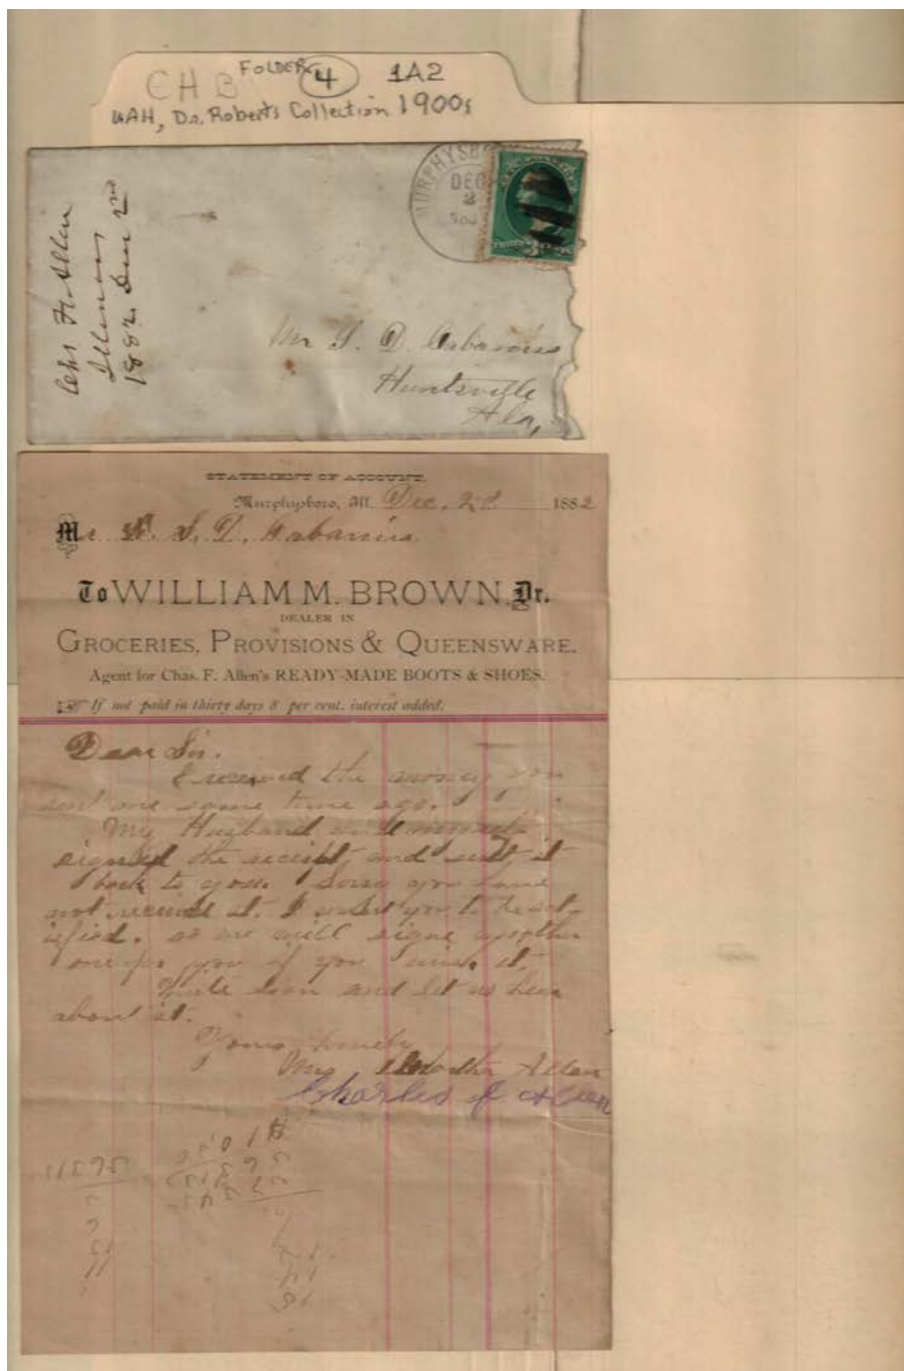 CHB FOLDER 4 1A2
UAH, Dr. Roberts Collection 1900s
MURPHYSBO
DEC
2
Chs F. Allen
Illinois
1882 Dec 2nd
Mr S. D. Cabaniss
Huntsville
Ala,
STATEMENT OF ACCOUNT.
Murphysboro, Ill. Dec. 2d 1882
Mr S. D. Cabaniss
To WILLIAM M. BROWN, Dr.
DEALER IN
GROCERIES, PROVISIONS & QUEENSWARE.
Agent for Chas. F. Allen's READY-MADE BOOTS & SHOES.
If not paid in thirty days 8 per cent. interest added.
Dear Sir.
I received the money you
sent me some time ago.
My Husband and myself
signed the receipt, and sent it
back to you. Sorry you have
not received it. I want you to be sat-
isfied. so we will signe another
one for you if you wish it.
Write soon and let us hear
about it.
Yours truely
Mrs Martha Allen
Charles F Allen